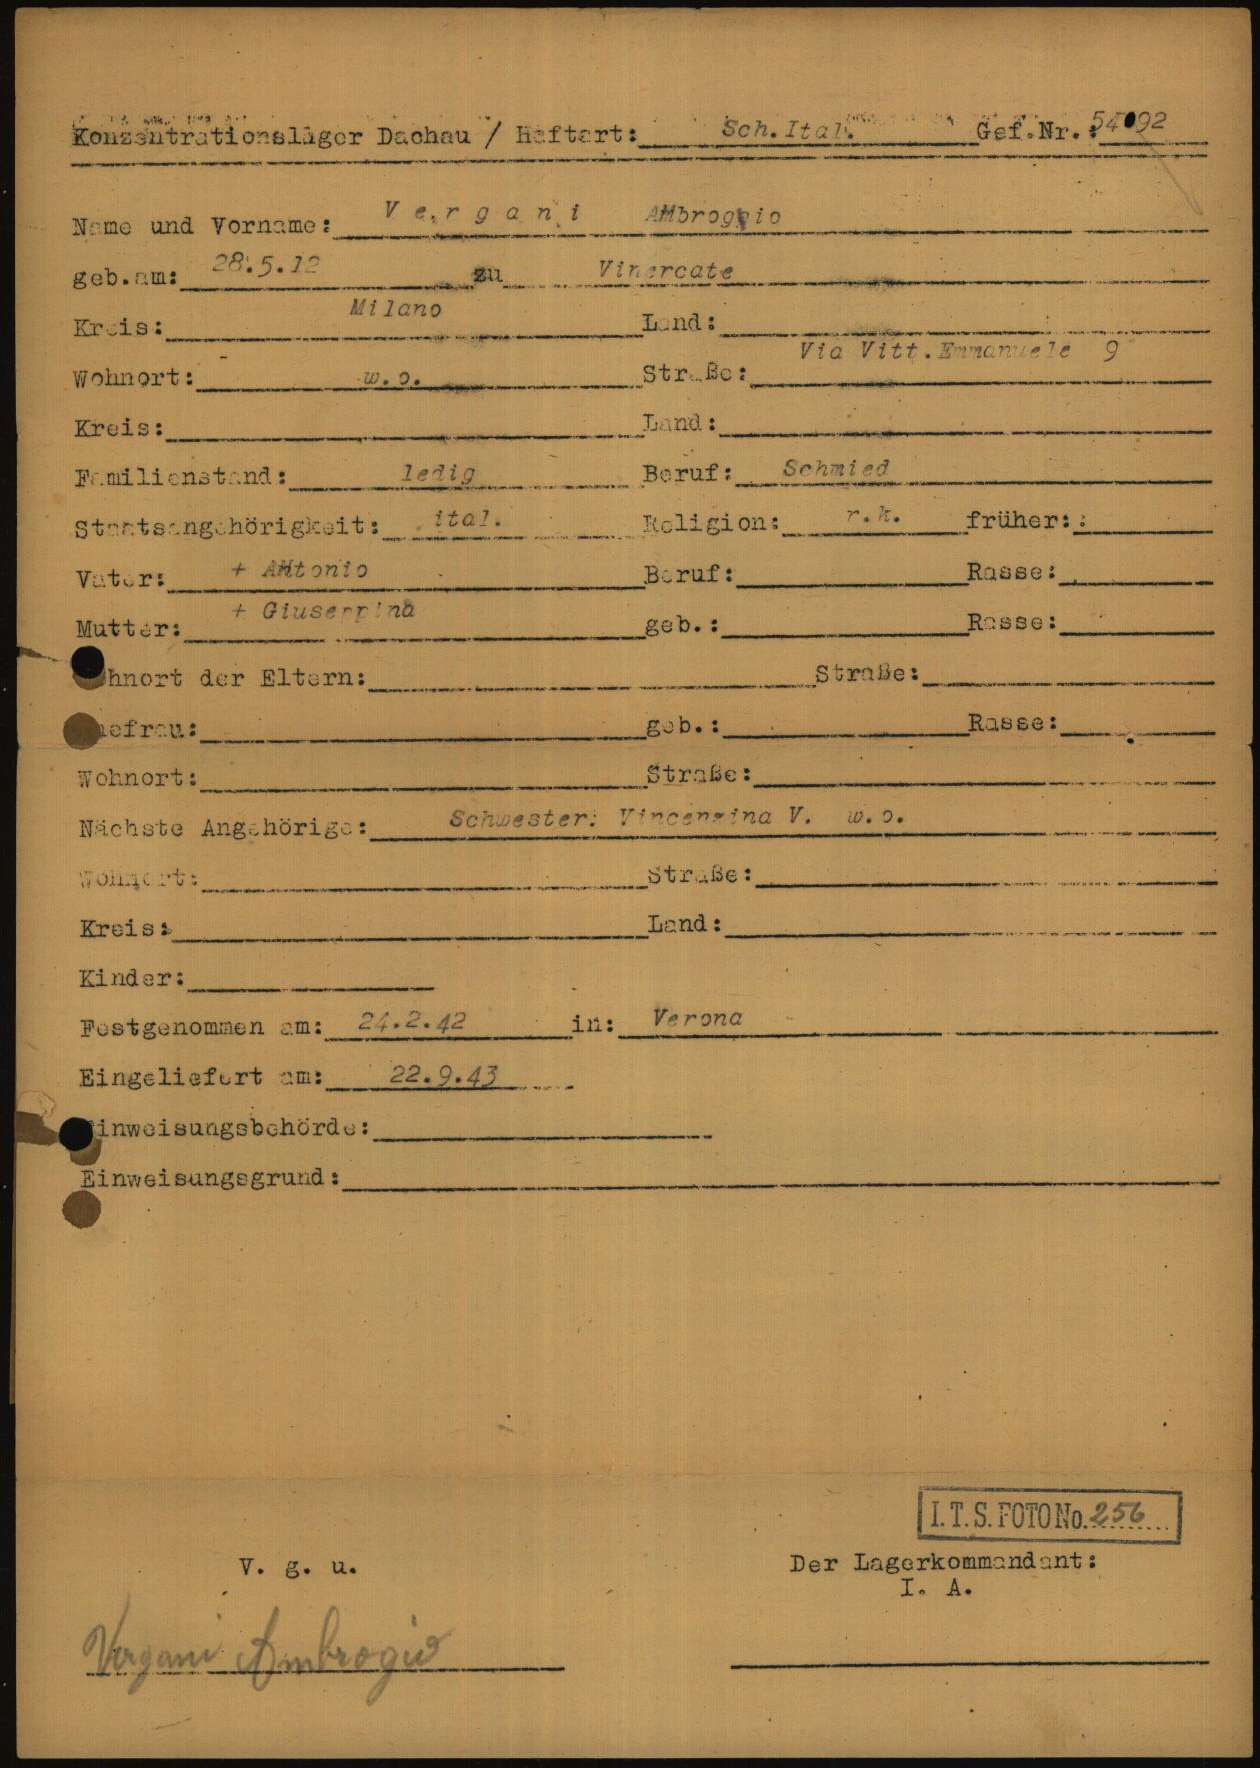 Konzentrationslager Dachau / Haftart: Sch.Ital. Gef.Nr.: 54092
Name und Vorname: Vergani AMbroggio
geb.am: 28.5.12 zu Vimercate
Kreis: Milano Land:
Wohnort: w.o. Straße: Via Vitt.Emmanuele 9
Kreis: Land:
Familienstand: ledig Beruf: Schmied
Staatsangehörigkeit: ital. Religion: r.k. früher::
Vater: + ANtonio Beruf: Rasse:
Mutter: + Giuseppina geb.: Rasse:
hnort der Eltern: Straße:
efrau: geb.: Rasse:
Wohnort: Straße:
Nächste Angehörige: Schwester: Vincenzina V. w.o.
Wohnort: Straße:
Kreis: Land:
Kinder:
Festgenommen am: 24.2.42 in: Verona
Eingeliefert am: 22.9.43
inweisungsbehörde:
Einweisungsgrund:
I.T.S. FOTO No. 256
V. g. u. Der Lagerkommandant:
I. A.
Vergani Ambrogio